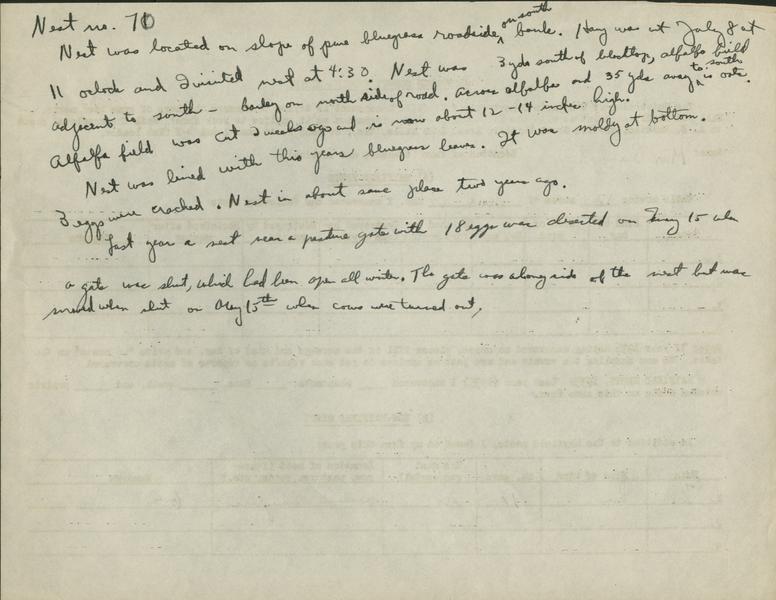 Nest no. 70
Nest was located on slope of pure bluegrass roadside, on south bank. Hay was cut July 8 at
11 oclock and I visited nest at 4:30. Nest was 3 yds south of blacktop, alfalfa field
adjacent to south - barley on north side of road. Across alfalfa and 35 yds away to south is oats.
Alfalfa field was cut 3 weeks ago and is now about 12-14 inches high.
Nest was lined with this years bluegrass leaves. It was moldy at bottom.
3 eggs were cracked. Nest in about same place two years ago.
Last year a nest near a pasture gate with 18 eggs was deserted on May 15 when
a gate was shut, which had been open all winter. The gate was along side of the nest but was
moved when shut on May 15th when cows were turned out.